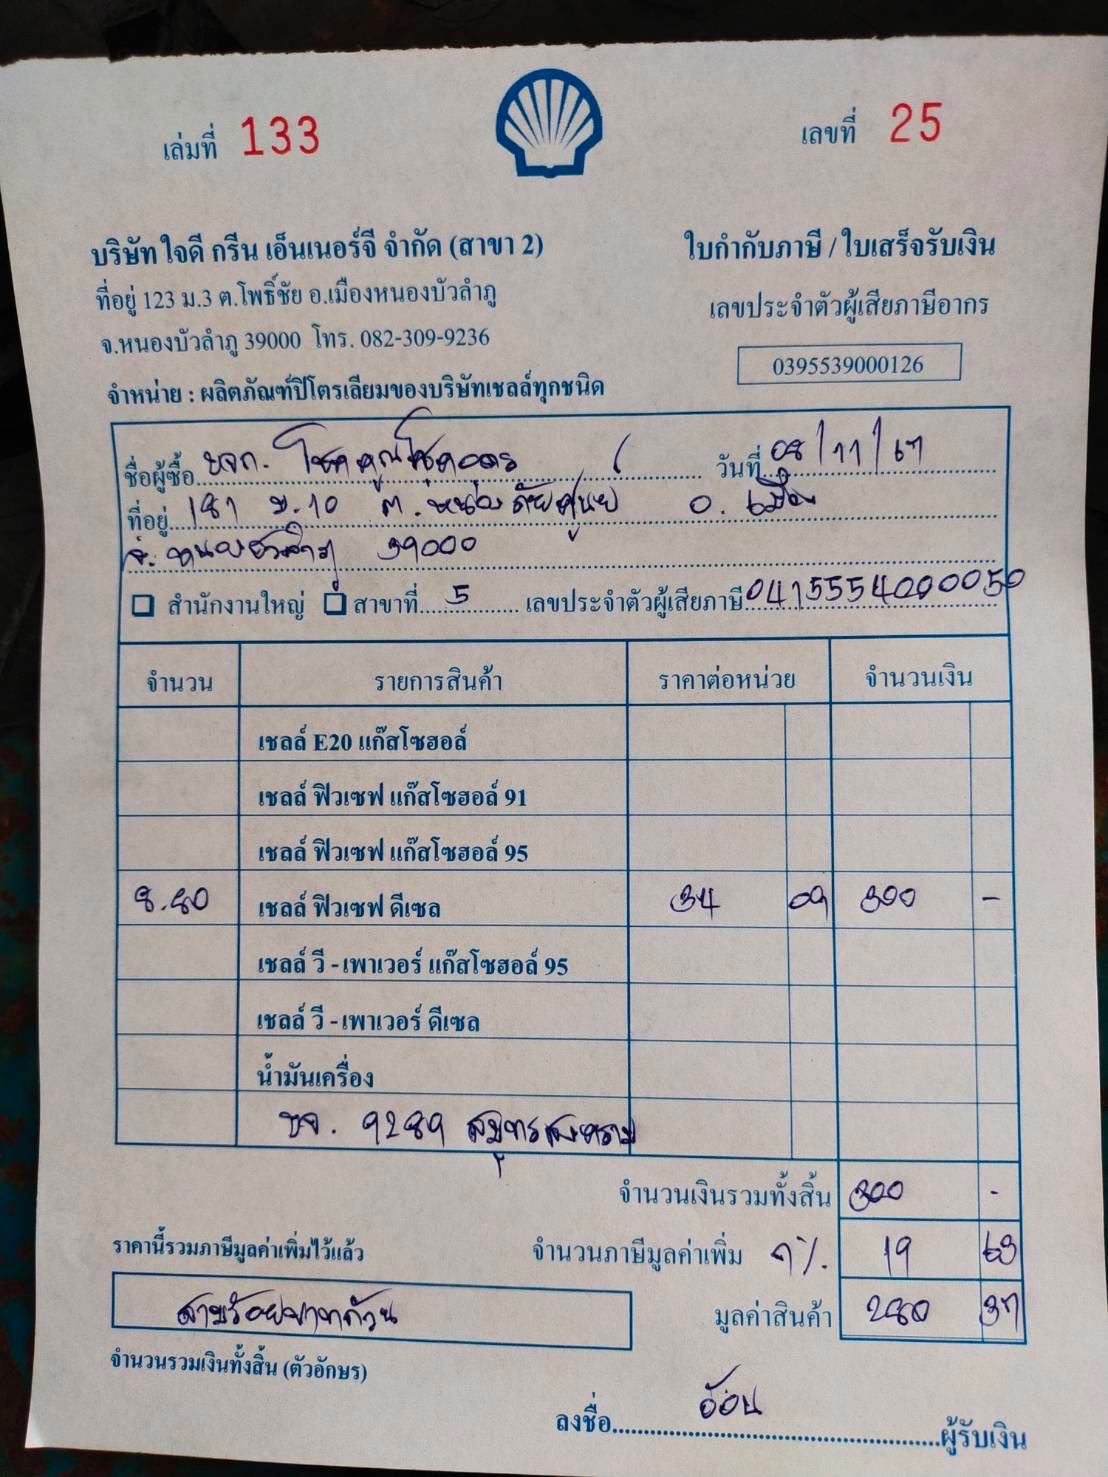 เล่มที่ 133
เลขที่ 25
บริษัท ใจดี กรีน เอ็นเนอร์จี จำกัด (สาขา 2)
ใบกำกับภาษี / ใบเสร็จรับเงิน
ที่อยู่ 123 ม.3 ต.โพธิ์ชัย อ.เมืองหนองบัวลำภู
เลขประจำตัวผู้เสียภาษีอากร
จ.หนองบัวลำภู 39000 โทร. 082-309-9236
0395539000126
จำหน่าย : ผลิตภัณฑ์ปิโตรเลียมของบริษัทเชลล์ทุกชนิด
ชื่อผู้ซื้อ บจก. โชคคูณโชคอุดร วันที่ 08/11/67
ที่อยู่ 181 ม.10 ต. หนองภัยศูนย์ อ. เมือง
จ. หนองบัวลำภู 39000
สำนักงานใหญ่ สาขาที่ 5 เลขประจำตัวผู้เสียภาษี 0415554000050
จำนวน รายการสินค้า ราคาต่อหน่วย จำนวนเงิน
เชลล์ E20 แก๊สโซฮอล์
เชลล์ ฟิวเซฟ แก๊สโซฮอล์ 91
เชลล์ ฟิวเซฟ แก๊สโซฮอล์ 95
8.80 เชลล์ ฟิวเซฟ ดีเซล 34 09 300 -
เชลล์ วี - เพาเวอร์ แก๊สโซฮอล์ 95
เชลล์ วี - เพาเวอร์ ดีเซล
น้ำมันเครื่อง
บจ. 9289 สมุทรสงคราม
จำนวนเงินรวมทั้งสิ้น 300 -
ราคานี้รวมภาษีมูลค่าเพิ่มไว้แล้ว จำนวนภาษีมูลค่าเพิ่ม 7%. 19 63
สามร้อยบาทถ้วน มูลค่าสินค้า 280 37
จำนวนรวมเงินทั้งสิ้น (ตัวอักษร)
ลงชื่อ อ้อน ผู้รับเงิน